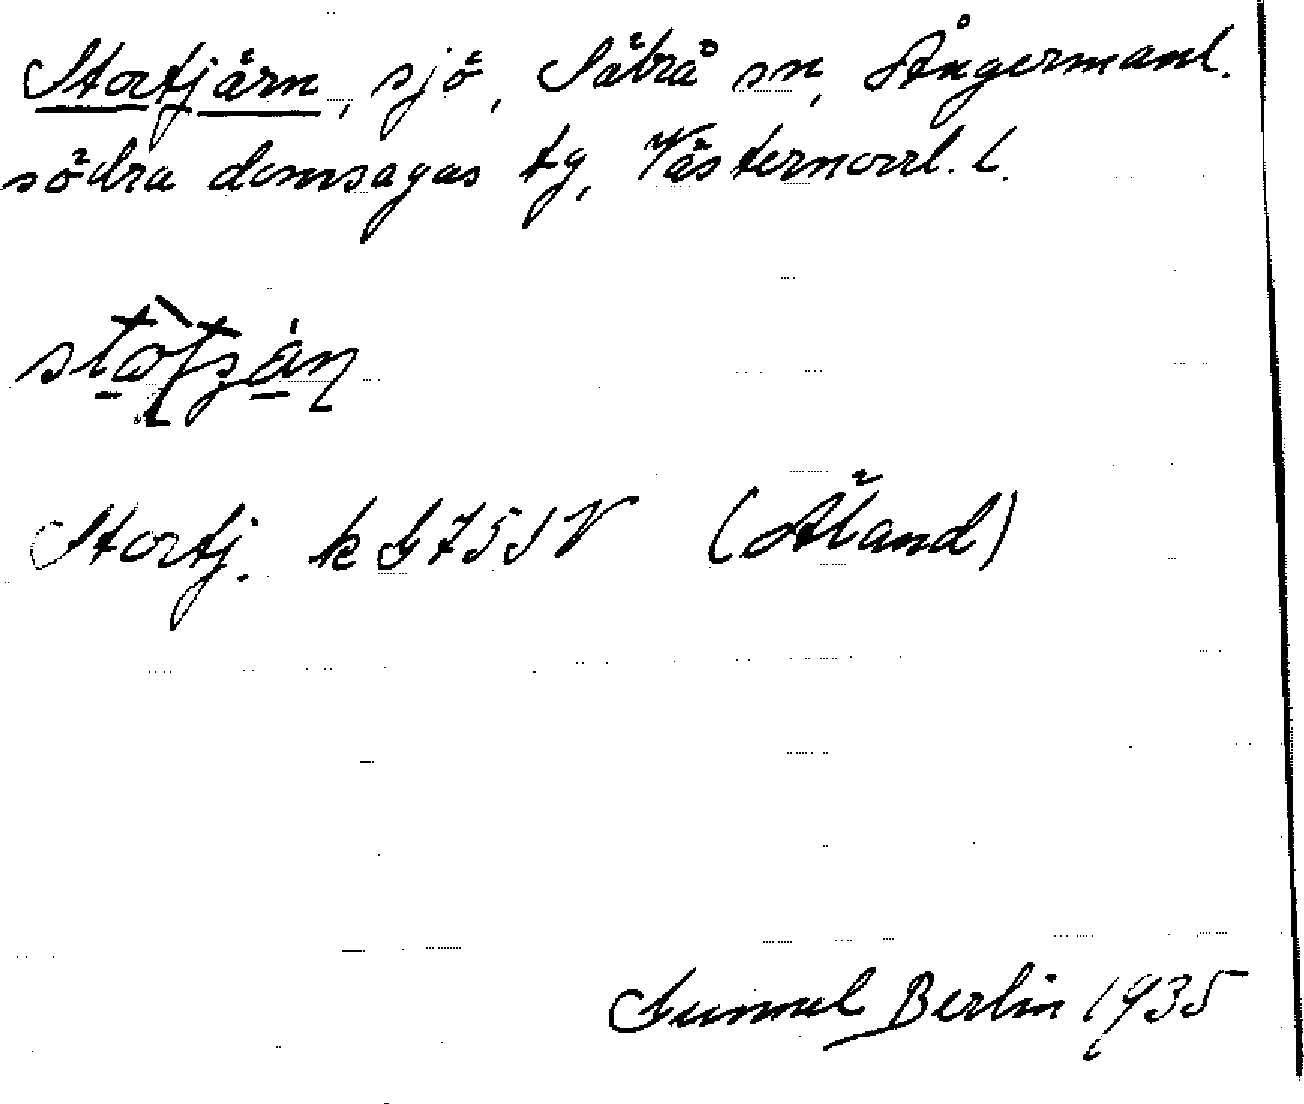 Stortjärn, sjö, Säbrå sn, Ångermanl.
södra domsagas tg, Västernorrl. l.
Stortj. k G 75 SV (Äland)
Gunnel Berlin 1935